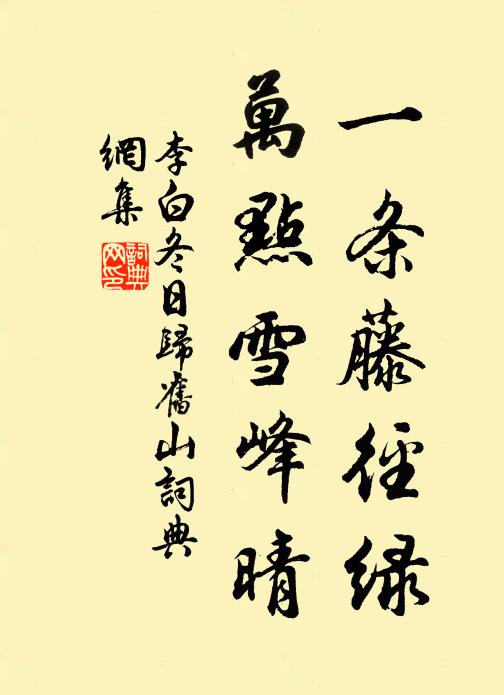 一条藤径绿
萬點雪峰晴
李白冬日歸舊山詞典
網集
詞典
网印